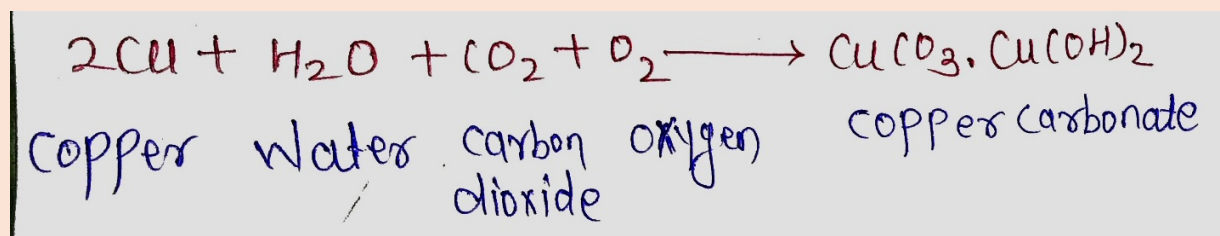 2Cu + H2O + CO2 + O2 → CuCO3. Cu(OH)2
copper water carbon dioxide oxygen copper carbonate